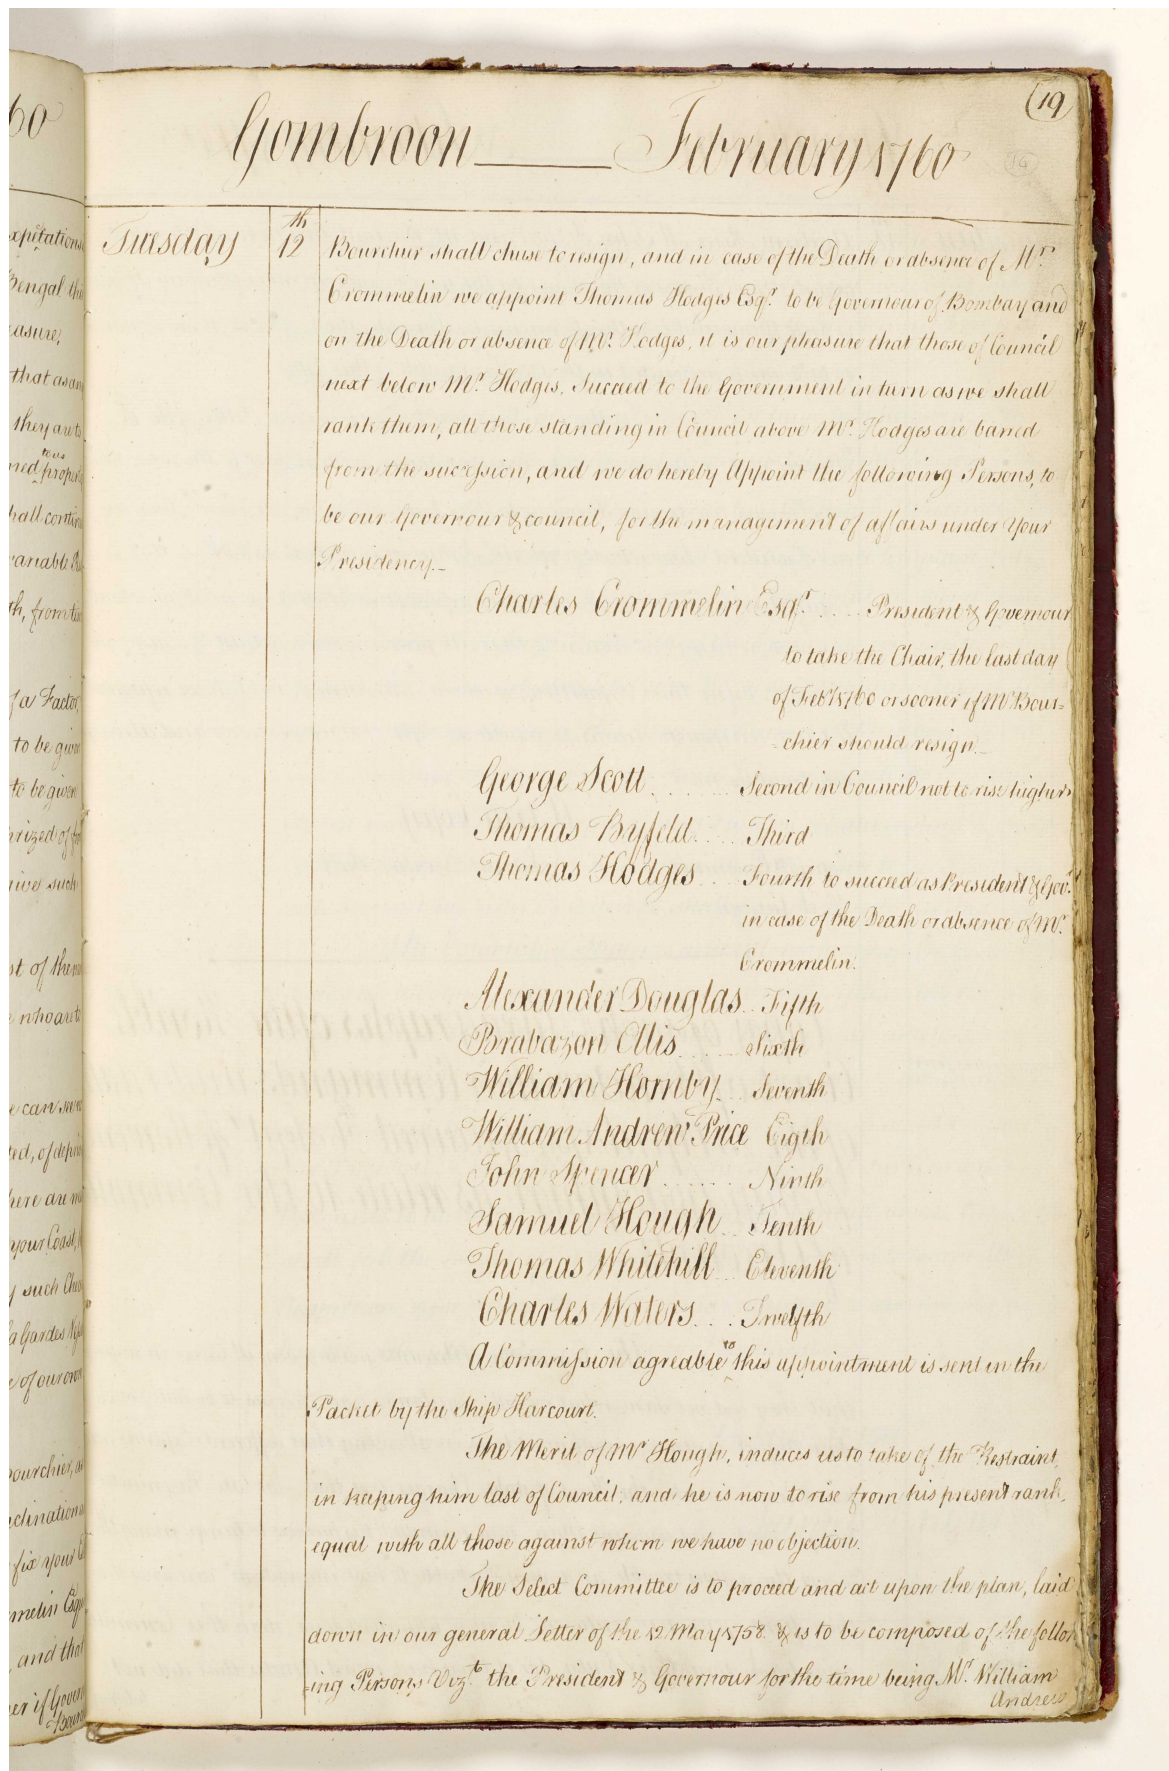 60
(19)
Gombroon ____ February 1760
Tuesday 12th Bourchier shall chuse to resign, and in case of the Death or absence of Mr.
Crommelin we appoint Thomas Hodges Esqr. to be Governour of Bombay and
on the Death or absence of Mr. Hodges, it is our pleasure that those of Council
next below Mr. Hodges, Succeed to the Government in turn as we shall
rank them, all those standing in Council above Mr. Hodges are barred
from the succession, and we do hereby Appoint the following Persons, to
be our Governour & council, for the management of affairs under Your
Presidency._
Charles Crommelin Esqr. .... President & Governour
to take the Chair, the last day
of Feby. 1760 or sooner if Mr Bour-
-chier should resign._
George Scott ..... Second in Council not to rise higher
Thomas Byfeld .... Third
Thomas Hodges .. Fourth to succeed as President & Govr.
in case of the Death or absence of Mr.
Crommelin.
Alexander Douglas .. Fifth
Brabazon Ellis ..... Sixth
William Hornby .. Seventh
William Andrew Price Eigth
John Spencer ...... Ninth
Samuel Hough .. Tenth
Thomas Whitehill .. Eleventh
Charles Waters ... Twelfth
A Commission agreable to this appointment is sent in the
Packet by the Ship Harcourt.
The Merit of Mr Hough, induces us to take of the Restraint,
in keeping him last of Council, and he is now to rise from his present rank,
equal with all those against whom we have no objection.
The Select Committee is to proceed and act upon the plan, laid
down in our general Letter of the 12 May 1758 & is to be composed of the follow
-ing Persons Vizt. the President & Governour for the time being Mr. William
Andrew